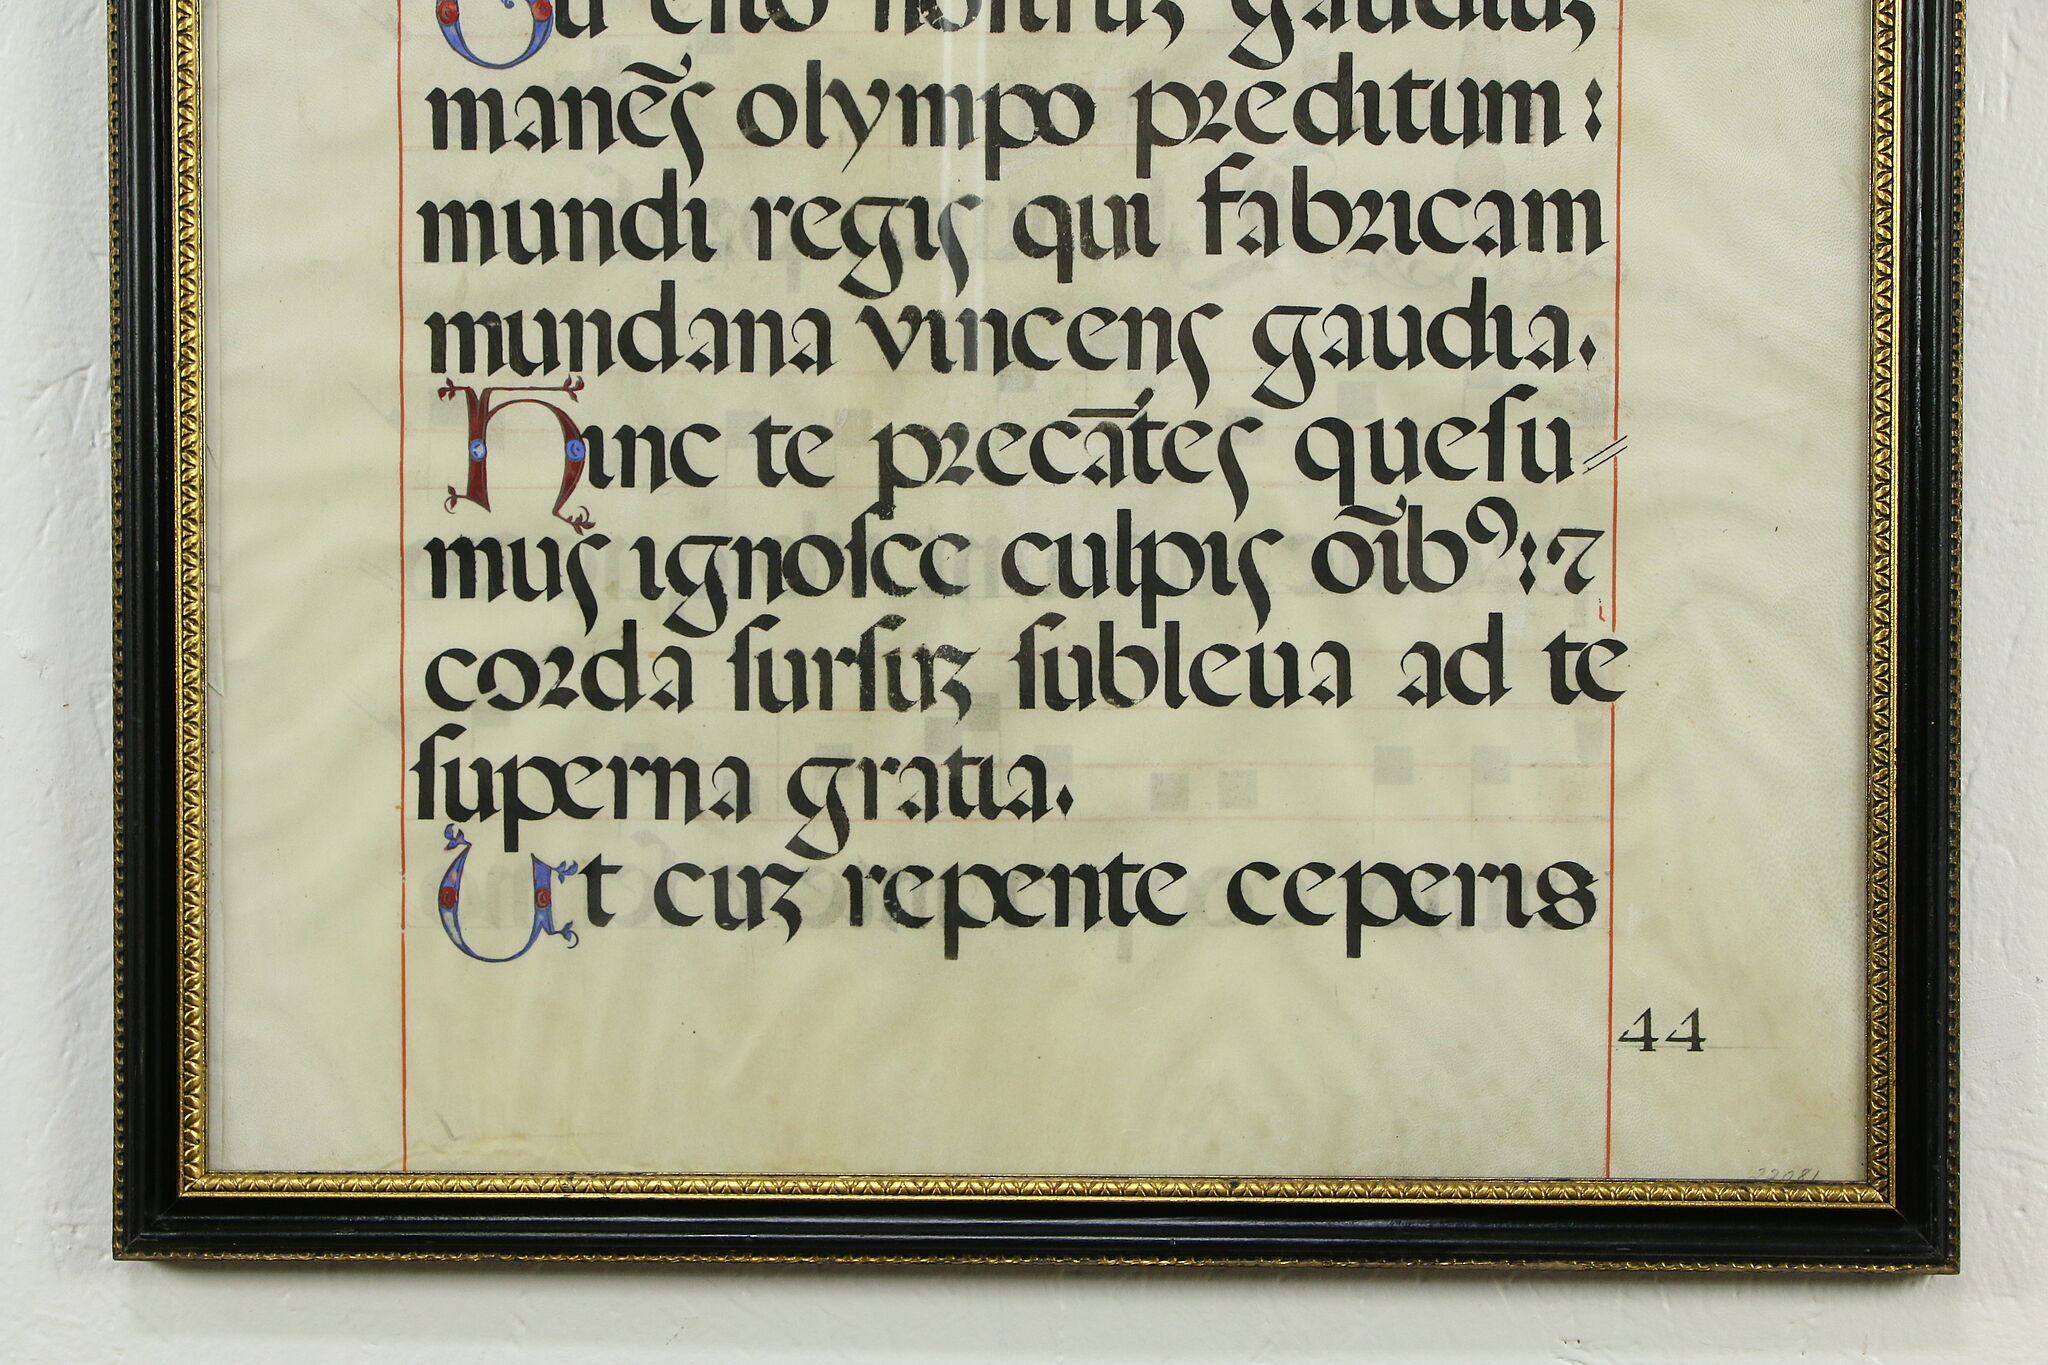 Tu esto nostruꝫ gaudiuꝫ
manẽs olympo preditum:
mundi regis qui fabricam
mundana vincens gaudia.
Hinc te precãtes quesu⸗
mus ignosce culpis oĩbꝰ: ⁊
corda sursuꝫ subleua ad te
superna gratia.
Ut cuꝫ repente ceperis
44
22081